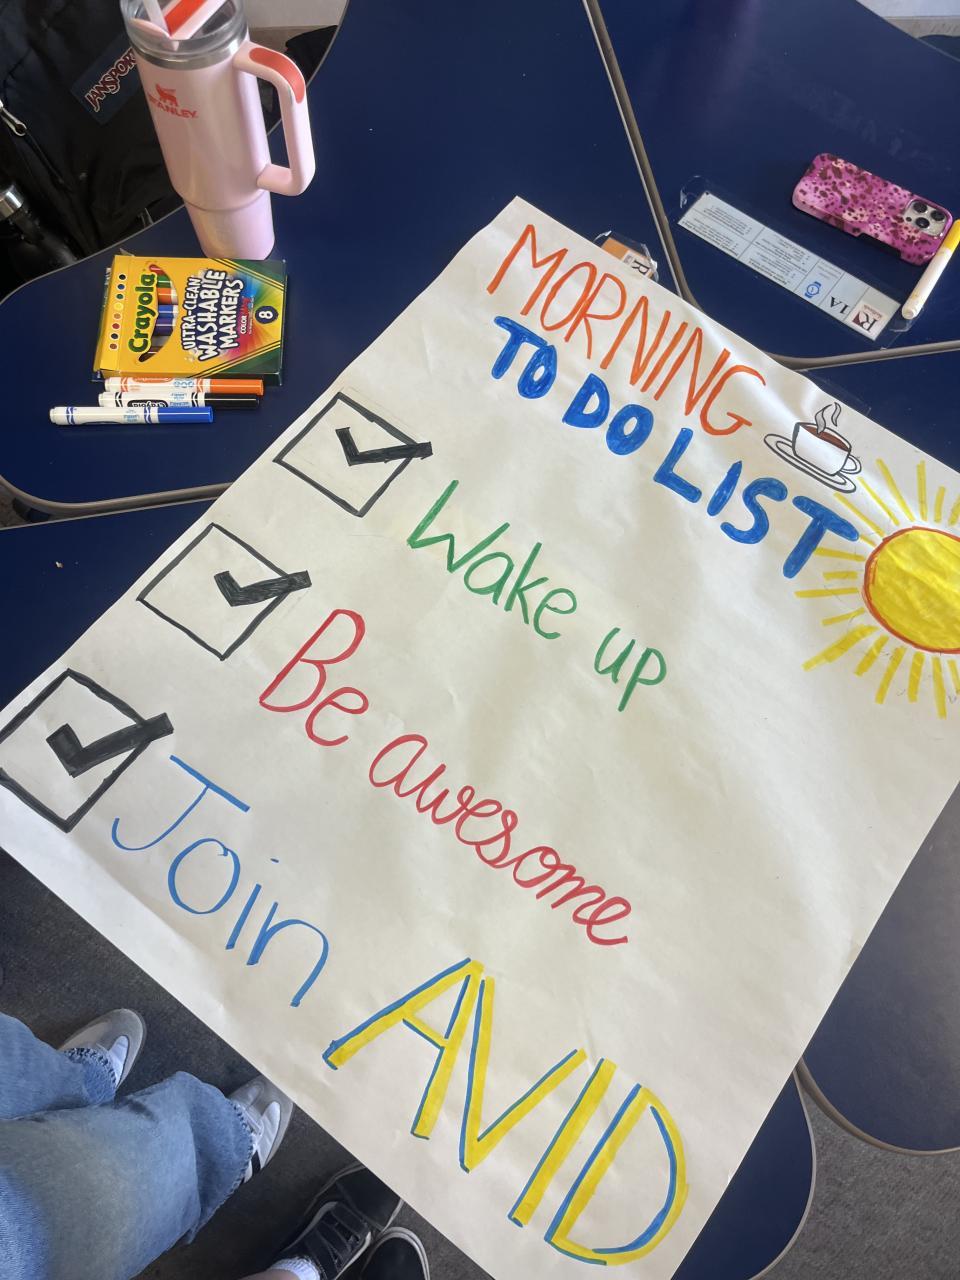 MORNING
TO DO LIST
Wake up
Be awesome
Join
AVID
STANLEY
JANSPORT
Crayola
ULTRA-CLEAN
WASHABLE
MARKERS
8
Crayola
1A